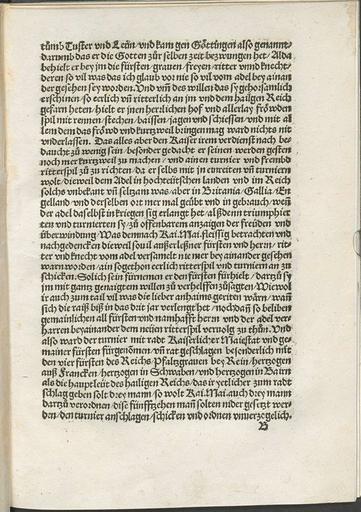 thůmb Tuster vnd Leẅn/ vnd kam gen Göttingen also genannt/
darumb das er die Gotten zůr selben zeit bezwungen het/ Alda
behielt er bey jm die fürsten/ grauen/ freyen/ ritter vnnd knecht/
deren so vil was das ich glaub vor nie so vil vom adel bey ainan
der gesehen sey worden. Vnd vm̄ des willen das sy gehorsamlich
erschinen/ so erlich vn̄ ritterlich an jm vnd dem hailgen Reich
gefarn heten/ hielt er jnen herrlichen hof vnd allerlay fröwden
spil mit rennen/ stechen/ baissen/ jagen vnd schiessen/ vnd mit al
lem dem das fröwd vnd kurtzweil bringen mag ward nichts nit
vnderlassen. Das alles aber den Kaiser irem verdienst nach be-
daucht zů wenig sein/ besonder gedacht er seinen werden gesten
noch mer kurtzweil zu machen/ vnd ainen turnier vnd frembd
ritterspil zů zů richten/ da er selbs mit jn einreiten vn̄ turniern
wolt/ dieweil dem Adel in hochteütschen landen vnd im Reich
solchs vnbekant vn̄ seltzam was/ aber in Britania/ Gallia/ En
gelland/ vnd derselben ort mer mal geübt vnd in gebrauch/ wen̄
der adel daselbst in kriegen sig erlangt het/ alßdenn triumphier
ten vnd turnierten sy/ zů offenbarem anzaigen der freüden vnd
überwindung. Was demnach Kai. Mai. fleissig betrachten vnd
nachgedencken dieweil souil außerleßner fürsten vnd herrn/ rit-
ter vnd knecht vom adel versamelt nie mer bey ainander gesehen
warn worden/ ain sogethon eerlich ritterspil vnd turnieren an zů
schicken. Solich sein fürnemen er den fürsten fürhielt/ darzů sy
jm mit gantz genaigtem willen zů verhelffen zůsagten/ Wiewol
ir auch zum tail vil was die lieber anhaims geriten wärn/ wan̄
sich die raiß biß in das drit jar verlengt het/ nochdan̄ so beliben
gemainlichen all fürsten vnd namhafft herrn vnd der adel ver-
harren bey ainander dem neüen ritterspil veruolg zu thůn. Vnd
also ward der turnier mit radt Kaiserlicher Maiestat vnd ge-
mainer fürsten fürgenōmen/ vn̄ rat geschlagen besonderlich mit
den vier fürsten des Reichs/ Pfaltzgrauen bey Rein/ hertzogen
auß Francken/ hertzogen in Schwaben/ vnd hertzogen in Bairn
als die hauptleüt des hailigen Reichs/ das ir yetlicher zum radt
schlag geben solt drey mann/ so wolt Kai. Mai. auch drey mann
dartzů verordnen/ dise fünffzehen man̄ solten nider gesetzt wer-
den/ den turnier anschlagen/ schicken vnd ordnen vnuerzogelich.
B